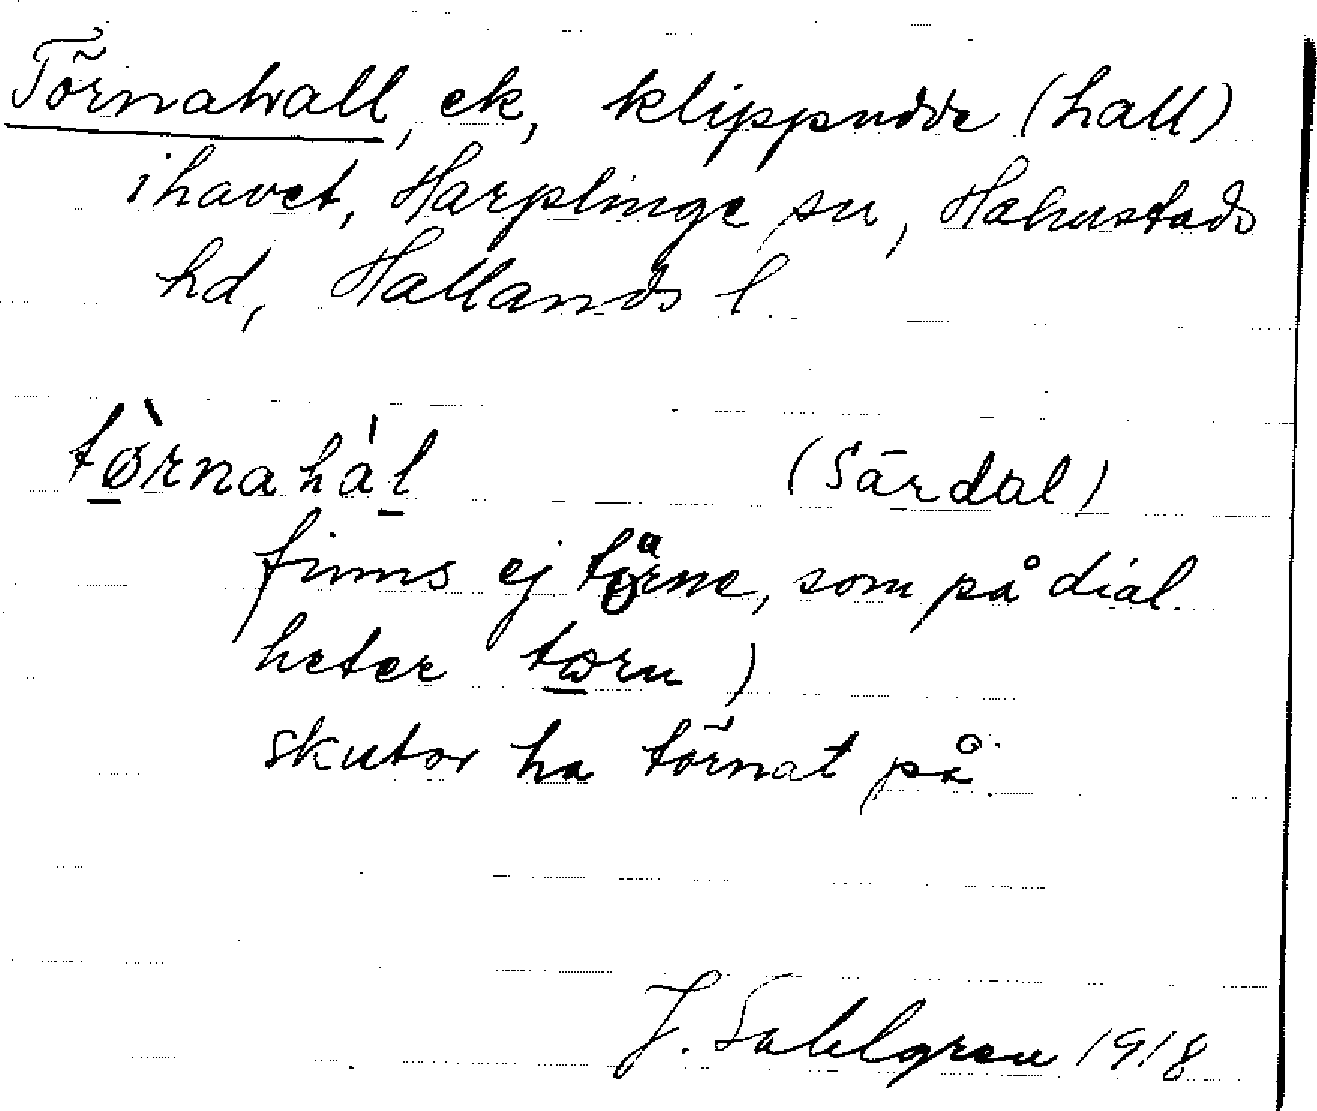 Törnahall, ek, klippudde (hall)
i havet, Harplinge sn, Halmstads
hd, Hallands l.
tòrnahál (Särdal)
finns ej törne, som på dial.
heter tørn)
skutor ha törnat på.
J. Sahlgren 1918